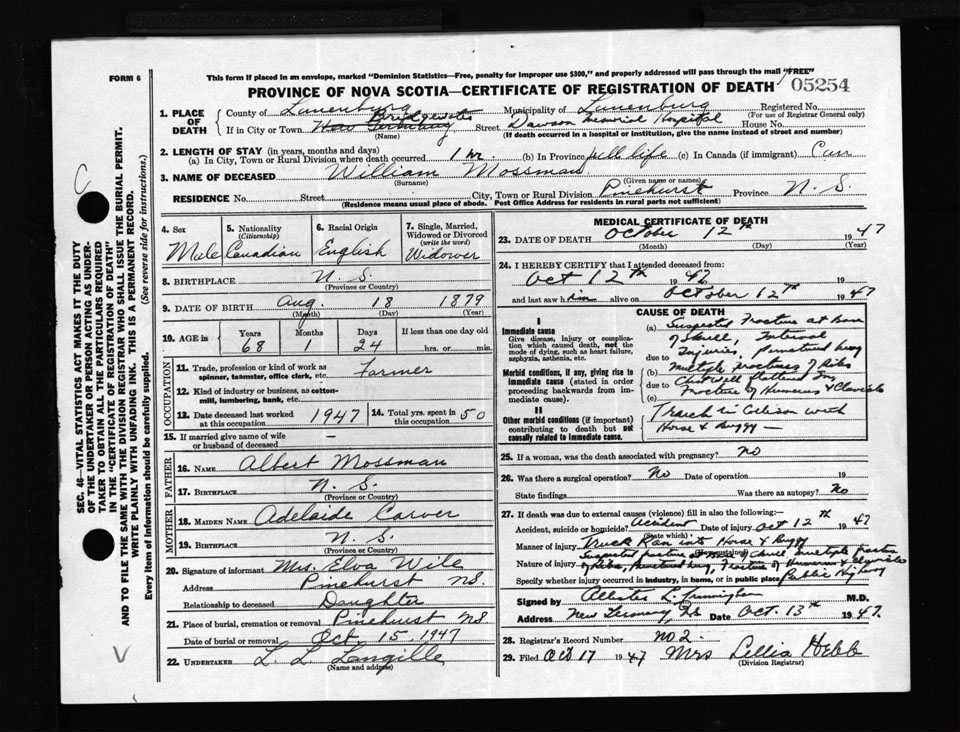 FORM 6
This form if placed in an envelope, marked "Dominion Statistics—Free, penalty for improper use $300," and properly addressed will pass through the mail "FREE"
PROVINCE OF NOVA SCOTIA—CERTIFICATE OF REGISTRATION OF DEATH
05254
1. PLACE OF DEATH
County of Lunenburg Municipality of Lunenburg Registered No.
(For use of Registrar General only)
Bridgewater
If in City or Town Street Dawson Memorial Hospital House No.
(Name) (If death occurred in a hospital or institution, give the name instead of street and number)
2. LENGTH OF STAY (in years, months and days)
(a) In City, Town or Rural Division where death occurred 1 hr. (b) In Province full life (c) In Canada (if immigrant)
3. NAME OF DECEASED William Mossman
(Surname) (Given name or names)
RESIDENCE No. Street City, Town or Rural Division Pinehurst Province N. S.
(Residence means usual place of abode. Post Office Address for residents in rural parts not sufficient)
4. Sex 5. Nationality (Citizenship) 6. Racial Origin 7. Single, Married, Widowed or Divorced (write the word)
Male Canadian English Widower
8. BIRTHPLACE N. S.
(Province or Country)
9. DATE OF BIRTH Aug. 18 1879
(Month) (Day) (Year)
10. AGE in Years Months Days If less than one day old
68 1 24 hrs. or min.
OCCUPATION
11. Trade, profession or kind of work as spinner, teamster, office clerk, etc. Farmer
12. Kind of industry or business, as cotton-mill, lumbering, bank, etc.
13. Date deceased last worked at this occupation 1947 14. Total yrs. spent in this occupation 50
15. If married give name of wife or husband of deceased —
FATHER
16. NAME Albert Mossman
17. BIRTHPLACE N. S.
(Province or Country)
MOTHER
18. MAIDEN NAME Adelaide Carver
19. BIRTHPLACE N. S.
(Province or Country)
20. Signature of informant Mrs. Elva Wile
Address Pinehurst N.S.
Relationship to deceased Daughter
21. Place of burial, cremation or removal Pinehurst N.S.
Date of burial or removal Oct 15, 1947
22. UNDERTAKER L. L. Langille
(Name and address)
MEDICAL CERTIFICATE OF DEATH
23. DATE OF DEATH October 12th 1947
(Month) (Day) (Year)
24. I HEREBY CERTIFY that I attended deceased from:
Oct 12th 1947 to 19
and last saw him alive on October 12th 1947
CAUSE OF DEATH
I
Immediate cause
Give disease, injury or complication which caused death, not the mode of dying, such as heart failure, asphyxia, asthenia, etc.
Morbid conditions, if any, giving rise to immediate cause (stated in order proceeding backwards from immediate cause).
II
Other morbid conditions (if important) contributing to death but not causally related to immediate cause.
(a) Suspected Fracture at Base
of Skull, Internal
due to Injuries, Punctured lung
(b) Multiple fractures of Ribs
due to Chest Wall Flattened In,
(c) Fracture of Humerus & Clavicle
Truck in Collision with
Horse & Buggy —
25. If a woman, was the death associated with pregnancy? no
26. Was there a surgical operation? No Date of operation 19
State findings Was there an autopsy? No
27. If death was due to external causes (violence) fill in also the following:—
Accident, suicide or homicide? Accident Date of injury Oct 12th 1947
(State which)
Manner of injury Truck Ran into Horse & Buggy
Suspected fracture of skull multiple fracture
Nature of injury of Ribs, Punctured lung, Fracture of Humerus & Clavicle
Specify whether injury occurred in industry, in home, or in public place Public Highway
Signed by M.D.
Address New Germany, NS Date Oct. 13th 1947.
28. Registrar's Record Number no 2.
29. Filed Oct 17 1947 Mrs Lellia Hebb
(Division Registrar)
SEC. 46—VITAL STATISTICS ACT MAKES IT THE DUTY
OF THE UNDERTAKER OR PERSON ACTING AS UNDER-
TAKER TO OBTAIN ALL THE PARTICULARS REQUIRED
IN THE "CERTIFICATE OF REGISTRATION OF DEATH"
AND TO FILE THE SAME WITH THE DIVISION REGISTRAR WHO SHALL ISSUE THE BURIAL PERMIT.
WRITE PLAINLY WITH UNFADING INK. THIS IS A PERMANENT RECORD.
Every item of information should be carefully supplied. (See reverse side for instructions.)